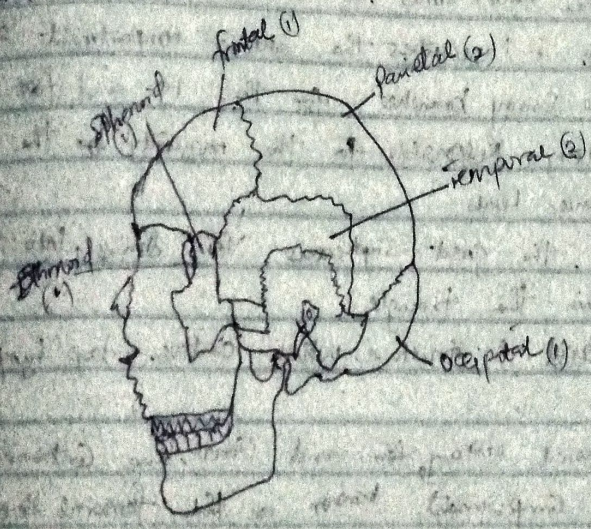 frontal (1)
Parietal (2)
Sphenoid
(1)
Temporal (2)
Ethmoid
(1)
occipital (1)